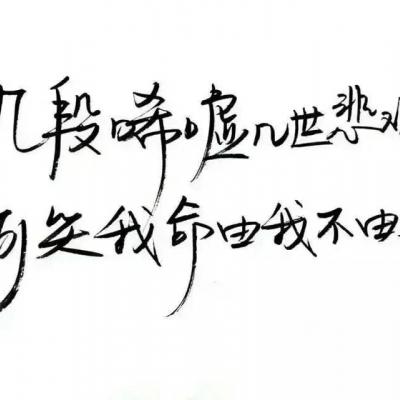 几段唏嘘几世悲欢
可笑我命由我不由